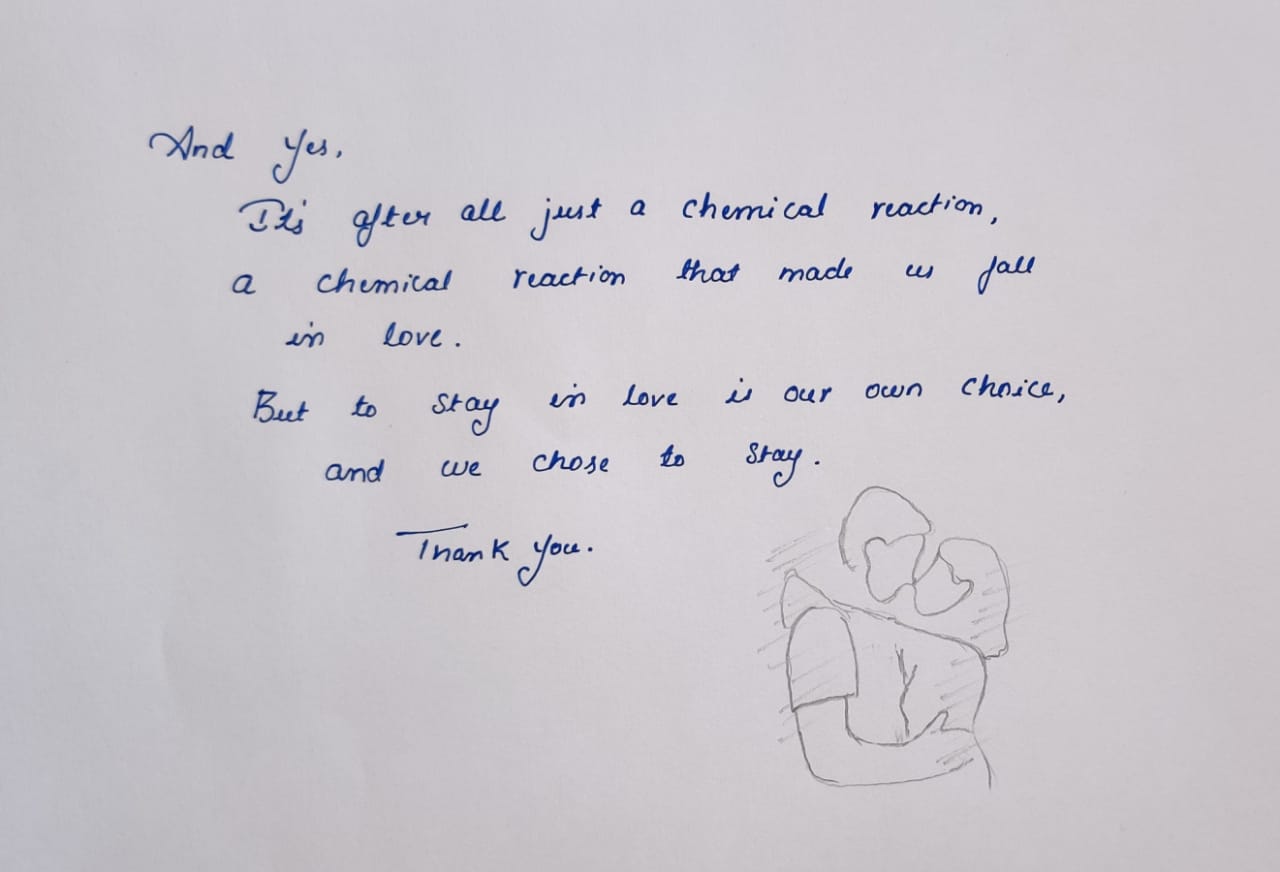 And Yes,
It's after all just a chemical reaction,
a chemical reaction that made us fall
in love.
But to stay in love is our own choice,
and we chose to stay.
Thank you.